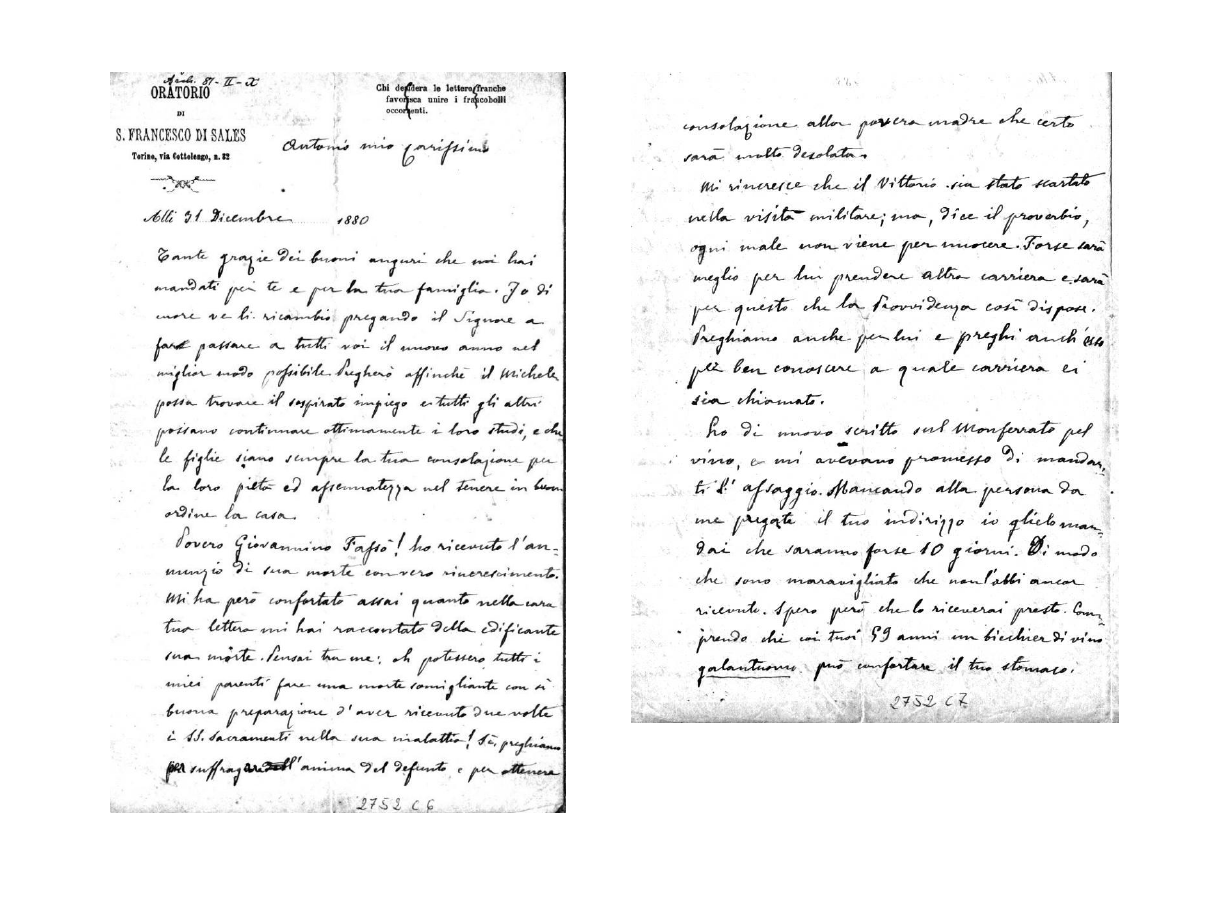 Arch. 81-II-X
ORATORIO
DI
S. FRANCESCO DI SALES
Torino, via Cottolengo, n. 32
Chi desidera le lettere franche
favorisca unire i francobolli
occorrenti.
Antonio mio carissimo
Alli 31 Dicembre 1880
Tante grazie dei buoni auguri che noi hai
mandati per te e per la tua famiglia. Io di
cuore ve li ricambio pregando il Signore a
fare passare a tutti voi il nuovo anno nel
miglior modo possibile. Pregherò affinchè il Michele
possa trovare il sospirato impiego e tutti gli altri
possano continuare ottimamente i loro studi, e che
le figlie siano sempre la tua consolazione per
la loro pietà ed assennatezza nel tenere in buon
ordine la casa.
Povero Giovannino Fassò! ho ricevuto l'an-
nunzio di sua morte con vero rincrescimento.
Mi ha però confortato assai quanto nella cara
tua lettera mi hai raccontato della edificante
sua morte. Pensai tra me: oh potessero tutti i
miei parenti fare una morte somigliante con sì
buona preparazione d'aver ricevuto due volte
i SS. Sacramenti nella sua malattia! Sì, preghiamo
per suffragare l'anima del defunto e per ottenere
2752 C6
consolazione alla povera madre che certo
sarà molto desolata.
Mi rincresce che il Vittorio sia stato scartato
nella visita militare; ma, dice il proverbio,
ogni male non viene per nuocere. Forse sarà
meglio per lui prendere altra carriera e sarà
per questo che la Provvidenza così dispose.
Preghiamo anche per lui e preghi anch'esso
per ben conoscere a quale carriera ei
sia chiamato.
Ho di nuovo scritto sul Monferrato pel
vino, e mi avevano promesso di mandar-
ti l'assaggio. Mancando alla persona da
me pregata il tuo indirizzo io glielo man-
dai che saranno forse 10 giorni. Di modo
che sono maravigliato che non l'abbi ancor
ricevuto. Spero però che lo riceverai presto. Com-
prendo che coi tuoi 59 anni un bicchier di vino
galantuomo può confortare il tuo stomaco;
2752 C7